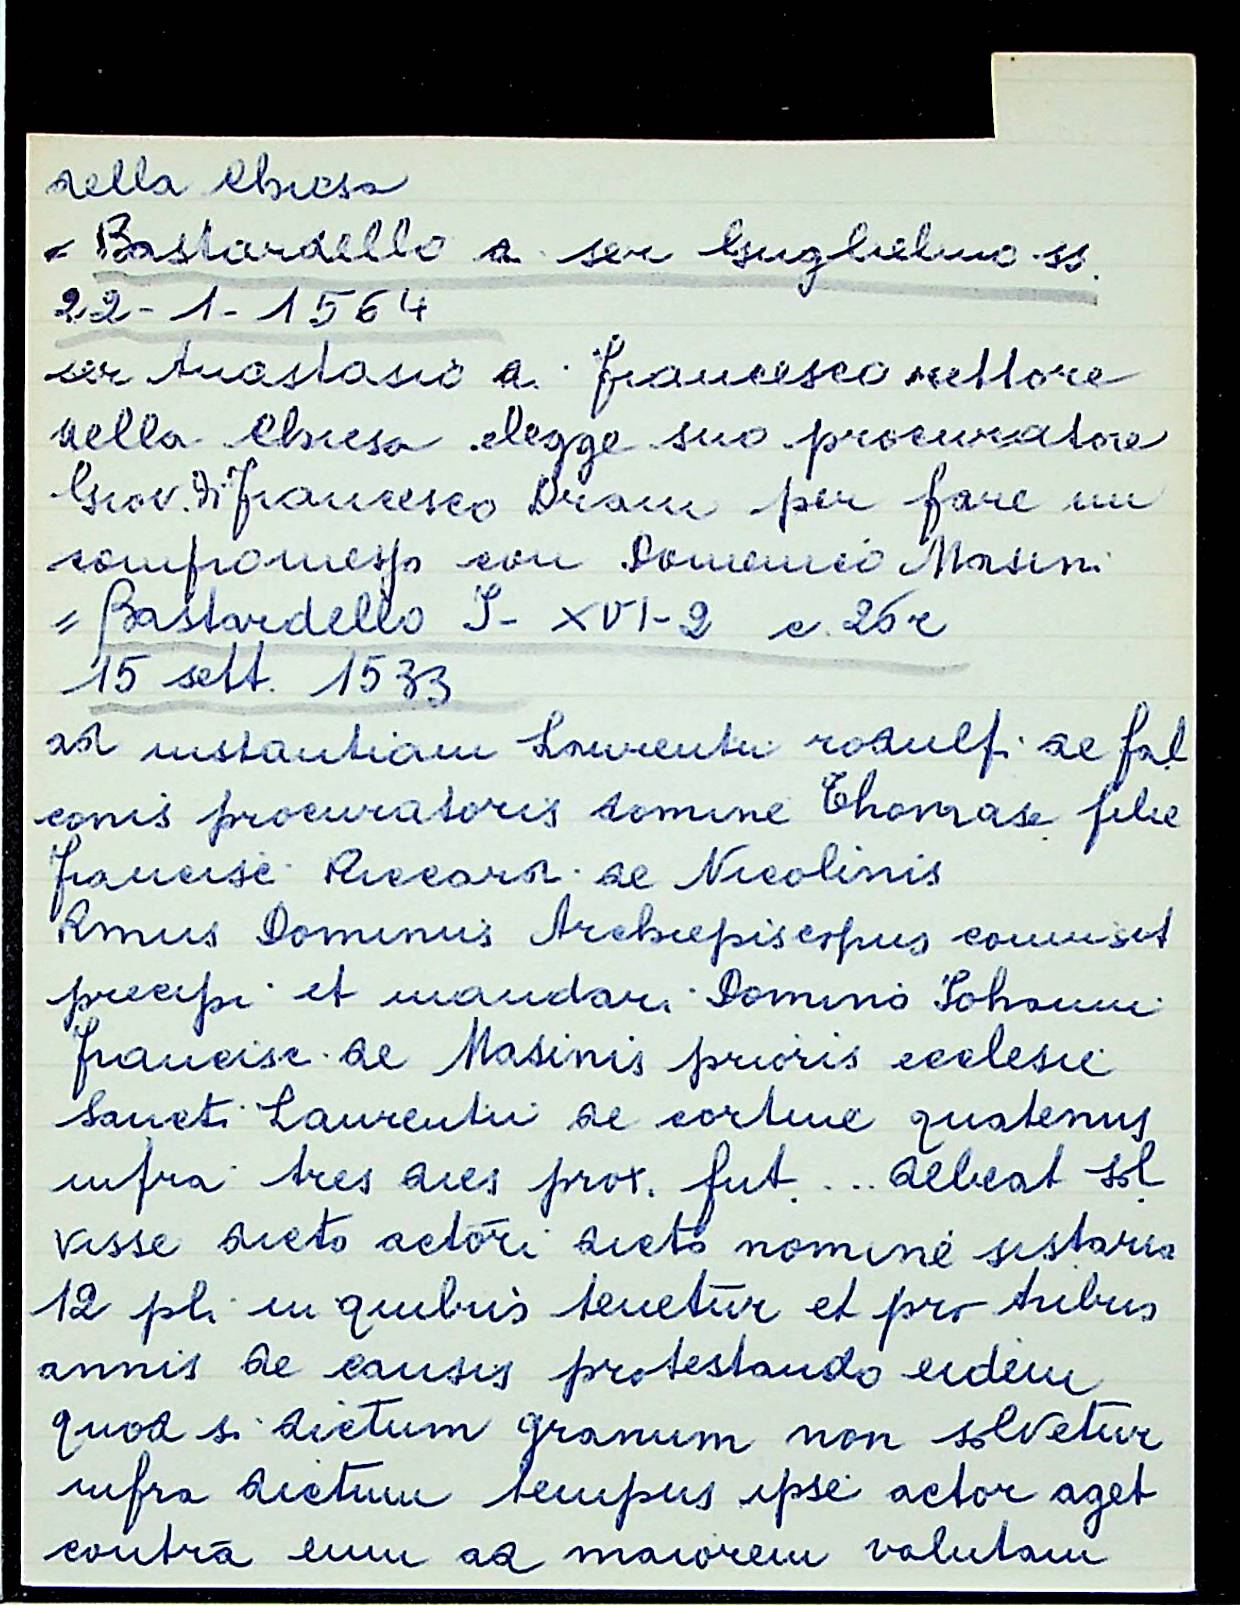 della Chiesa
= Bastardello d. ser Guglielmo ss.
22-1-1564
ser Anastasio d. Francesco rettore
della Chiesa elegge suo procuratore
Giov. di Francesco per fare un
compromesso con Domenico Masini
= Bastardello I- XVI-2 c. 25r
15 sett. 1533
ad instantiam Laurentii rodulfi de fal
conis procuratoris domine Thomase filie
francisci Riccardi de Nicolinis
Rmus Dominus Archiepiscopus commisit
precipi et mandari Domino Iohanni
francisc. de Masinis prioris ecclesie
Sancti Laurentii de cortine quatenus
infra tres dies prox. fut. ... debeat sol
visse dicto actori dicto nomine sestaria
12 pli in quibus tenetur et pro tribus
annis de causis protestando eidem
quod si dictum granum non solvetur
infra dictum tempus ipse actor aget
contra eum ad maiorem valutam